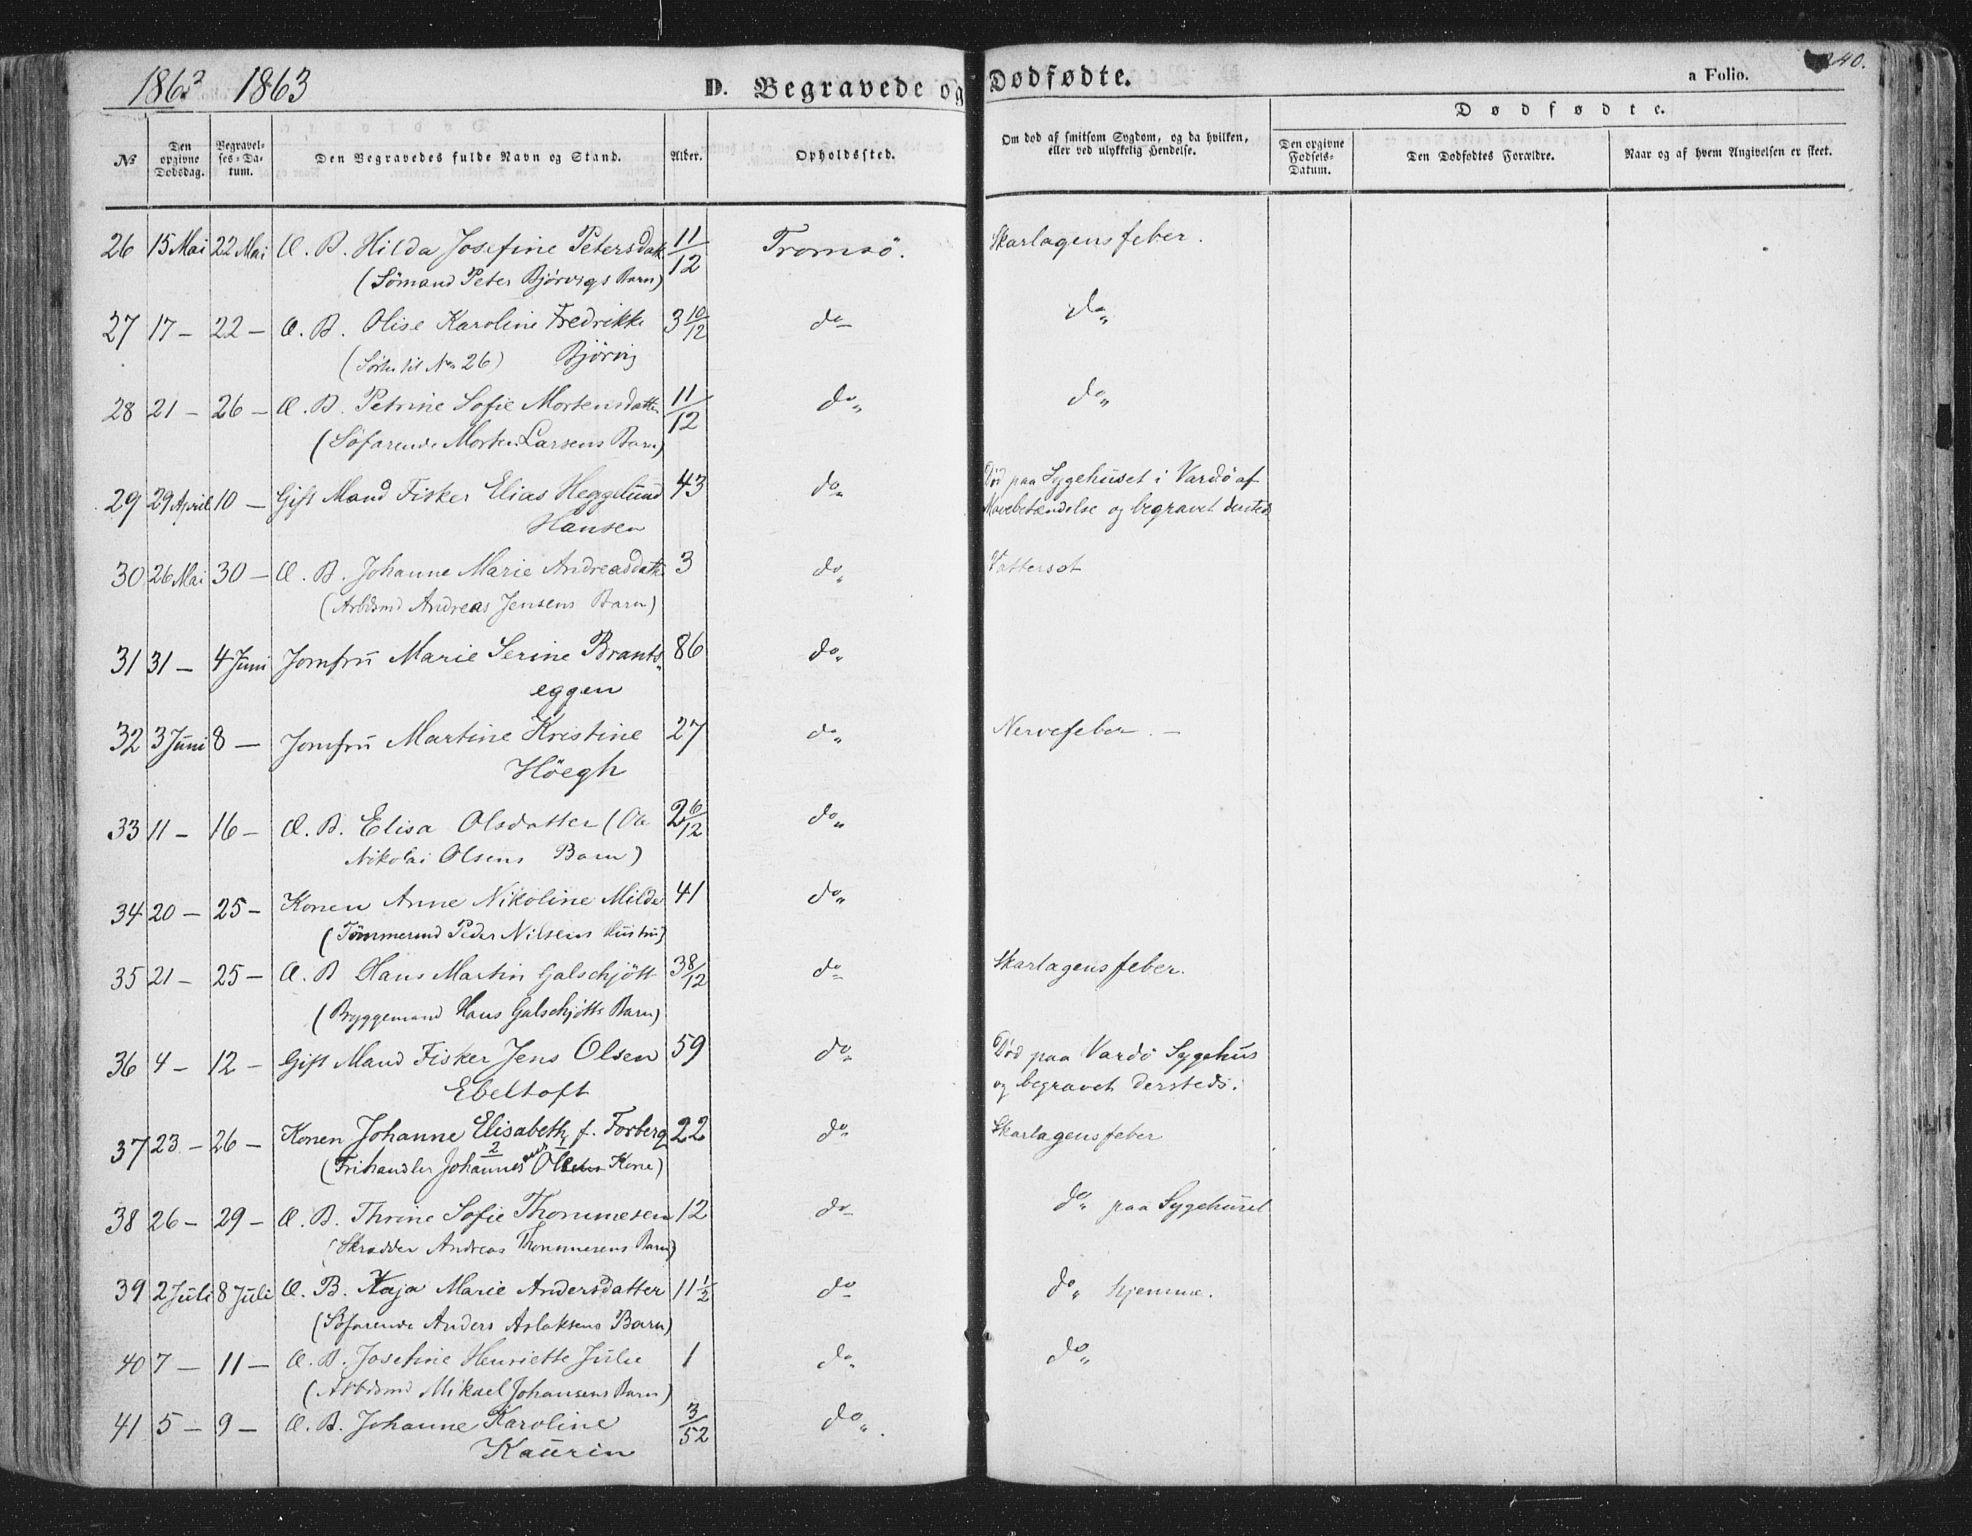 1863 1863 D. Begravede og Dødfødte. a Folio. 240.
No Den opgivne Dødsdag. Begravelses-Datum. Den Begravedes fulde Navn og Stand. Alder. Opholdssted. Om død af smitsom Sygdom, og da hvilken, eller ved ulykkelig Hendelse. Dødfødte. Den opgivne Fødsels-Datum. Den Dødfødtes Forældre. Naar og af hvem Angivelsen er skeet.
26 15 Mai 22 Mai Æ. B. Hilda Josefine Petersdatt 11/12 Tromsö. Skarlagensfeber.
(Sömand Peter Bjørvigs Barn)
27 17 - 22 - Æ. B. Olise Karoline Fredrikke 3 10/12 do do
(Søster til No 26) Bjørvig
28 21 - 26 - Æ. B. Petrine Sofie Mortensdatter 11/12 do do
(Söfarende Morten Larsens Barn)
29 29 April 10 - Gift Mand Fisker Elias Heggelund 43 do Död paa Sygehuset i Vardö af
Hansen Mavebetændelse og begravet dersteds
30 26 Mai 30 - Æ. B. Johanne Marie Andreasdatt. 3 do Vattersot
(Arbdsmd Andreas Jensens Barn)
31 31 - 4 Juni Jomfru Marie Serine Brants- 86 do
eggen
32 3 Juni 8 - Jomfru Martine Kristine 27 do Nervefeber. -
Höegh
33 11 - 16 - Æ. B. Elisa Olsdatter (Ole 2 6/12 do
Nikolai Olsens Barn)
34 20 - 25 - Konen Anne Nikoline Milde 41 do
(Tömmermd Peder Nilsens Hustru)
35 21 - 25 - Æ. B Hans Martin Galschjött 3 8/12 do Skarlagensfeber.
(Bryggemand Hans Galschjötts Barn)
36 4 - 12 - Gift Mand Fisker Jens Olsen 59 do Död paa Vardö Sygehus
Ebeltoft og begravet dersteds.
37 23 - 26 - Konen Johanne Elisabeth f. Forberg 22 do Skarlagensfeber
(Frihandler Johannes Olsens Kone)
38 26 - 29 - Æ. B. Thrine Sofie Thommesen 12 do do paa Sygehuset
(Skrædder Andreas Thommesens Barn)
39 2 Juli 8 Juli Æ. B. Kaja Marie Andersdatter 11 1/2 do do hjemme.
(Söfarende Anders Aslaksens Barn)
40 7 - 11 - Æ. B. Josefine Henriette Julie 1 do do
(Arbdsmd Mikael Johansens Barn)
41 5 - 9 - Æ. B. Johanne Karoline 3/52 do
Kaurin